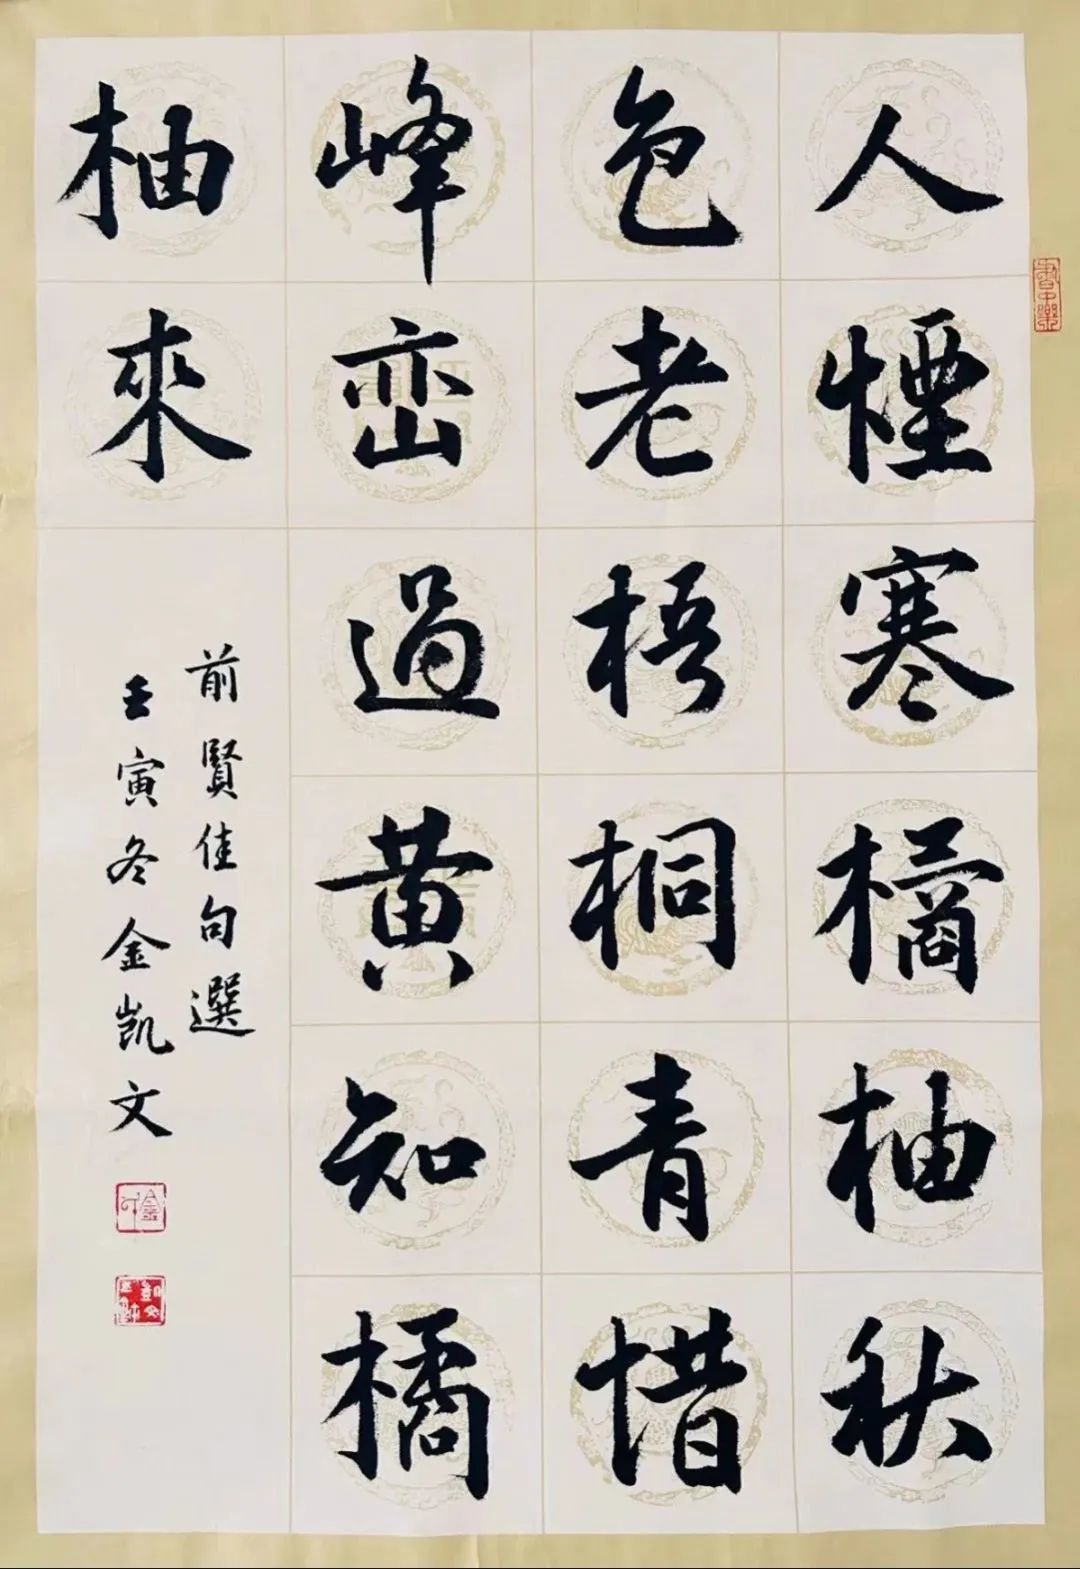 書中樂
人煙寒橘柚秋
色老梧桐青惜
峰峦過黄知橘
柚來
前賢佳句選
壬寅冬金凯文